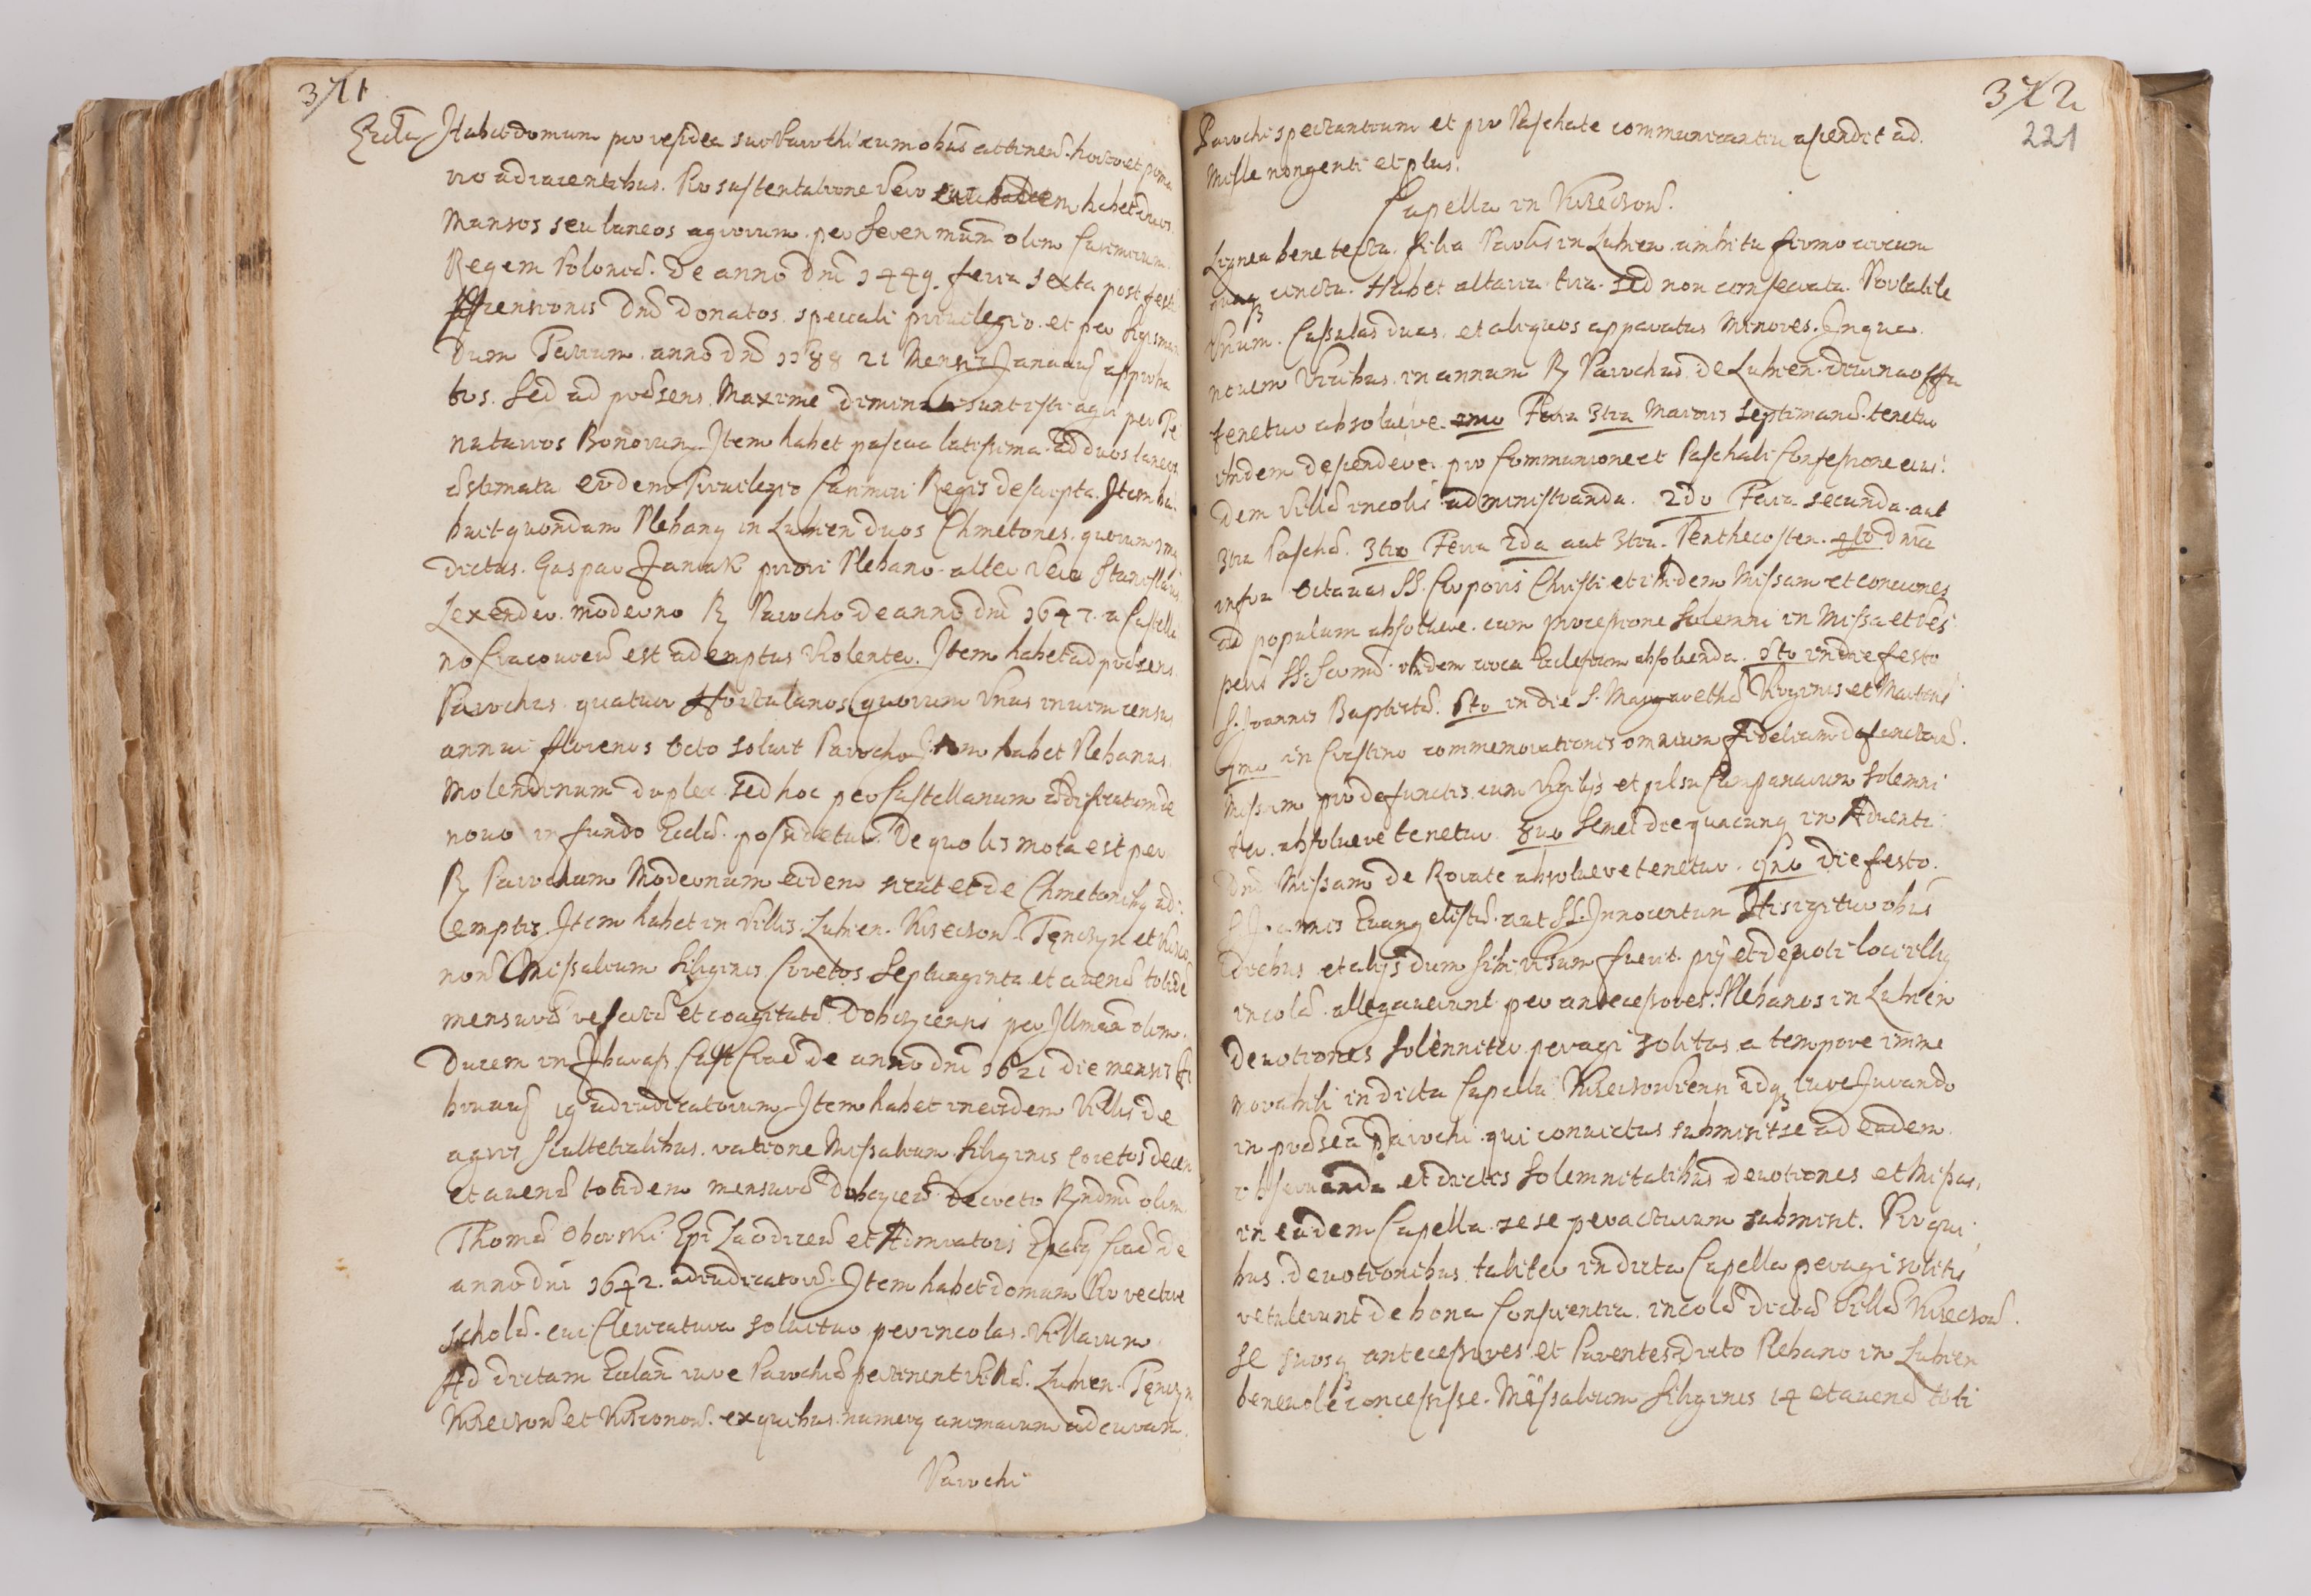 371
Eccla Habet domum pro residen suo Parochi cum obus attinen. horto et poma
rio adiacentibus. Pro sustentatione vero habet duos
Mansos seu laneos agrorum per Seren mum olim Casimirum
Regem Poloniæ. De anno Dni 1449. feria sexta post fest
Assensionis Dni donatos. speciali priuilegio. et per Sigismun
dum Tertium anno Dni 1588 21 Mensis Januarij approba
tos. Sed ad præsens. Maxime diminuti sunt isti agri per Te
nutarios Bonorum. Item habet pascua latissima ad duos laneos
æstimata eodem Priuilegio Casimiri Regis descripta. Item ha
buit quondam Plebanq in Lubien duos Chmetones. quorum 1mq
dictus. Gaspar Janiak priori Plebano. alter vero Stanislaus
Lexander. moderno R Parocho de anno dni 1647. a Castella
no Cracouien est ademptus violenter. Item habet ad præsens
Parochus quatuor Hortulanos quorum Vnus in vim census
annui florenos octo soluit Parocho Item habet Plebanus.
Molendinum duplex sed hoc per Castellanum ædificatum de
nouo in fundo Eccliæ. possidetur. De quo lis mota est per
R Parochum Modernum eidem sicut et de Chmetonibq ad
emptis. Item habet in Villis. Lubien. Krzeczow. Tęnczyn et
now Missalium Siliginis Coretos Septuaginta et auenæ totide
mensuræ resciræ et coagitatæ Dobczycensis per Illmum olim.
Ducem in Zbaraz. Cast Crac de anno dni 1621 die mensis Fe
bruarij 19 adiudicatorum. Item habet in eisdem Villis de
agris Scultetialibus. ratione Missalium Siliginis Coretos decem
et auenæ totidem mensuræ dobczycen decreto Rndmi olim
Thomæ Oborski Epi Laodicen et Admratoris Epatq Crac de
anno dni 1642. adiudicator. Item habet domum Pro rectore
Scholæ. cui Clericatura soluitur per incolas. Villarum.
Ad dictam Ecclam iure Parochiæ pertinent Villæ. Lubien. Tęnczyn
Krzeczow et Krzczonow. ex quibus. numerq animarum ad curam.
Parochi
372
221
Parochi spectantium et pro Paschate communicantiu ascendit ad.
Mille nongenti et plus.
Capella in Krzeczow.
Lignea bene tecta. filia Parochis in Lubien. ambitu firmo circum
circaq cincta. Habet altaria. tria. sed non consecrata. Portatile
Vnum. Cassulas duas. et aliquos apparatus Minores. In qua
nouem Vicibus in annum R Parochus de Lubien diuina offi
tenetur absoluere. 1mo Feria 3tia Maioris septimanæ. tenetur
ibidem descendere. pro Communione et Paschali Confessione eius
dem Villæ incolis administranda. 2do Feria secunda. aut
3tia Paschæ. 3tio Feria 2da aut 3tia. Penthecosten. 4to dnica
infra octauas SS. Corporis Christi et ibidem Missam et conciones
ad populum absoluere. cum processione Solemni in Missa et Ves
peris SS. Scrmi ibidem circa Ecclesiam absoluenda. 5to in die festo
S. Joannis Baptistæ. 6to in die S. Margarethæ Virginis et Martiris
7mo in Crastino commemorationis omnium fidelium defunctorum.
Missam pro defunctis cum Vigilijs et pulsu Campanarum solemni
ter. absoluere tenetur. 8uo semel die quacunq in Aduentu
Dni Missam de Rorate absoluere tenetur. 9no die festo.
S Joannis Euangelistæ. aut SS. Innocentum His igitur obus
diebus et alijs dum sibi Visum fuerit. pij et deuoti loci illiq
incolæ allegauerunt per antecessores. Plebanos in Lubien
deuotiones solenniter peragi solitas a tempore imme
morabili in dicta Capella Krzeczowiensi idq iure Jurando
in præsen Parochi. qui conuictus submisit se ad eadem
obseruanda et dictis solemnitatibus deuotiones et Missas.
in eadem Capella se se peracturum submisit. Pro qui
bus. deuotionibus. taliter in dicta Capella peragi solitis
retulerunt de bona Conscientia. incolæ dictæ Villæ Krzeczow.
se suosq antecessores et Parentes dicto Plebano in Lubien
beneuole concessisse. Missalium Siliginis 14 et auenæ toti